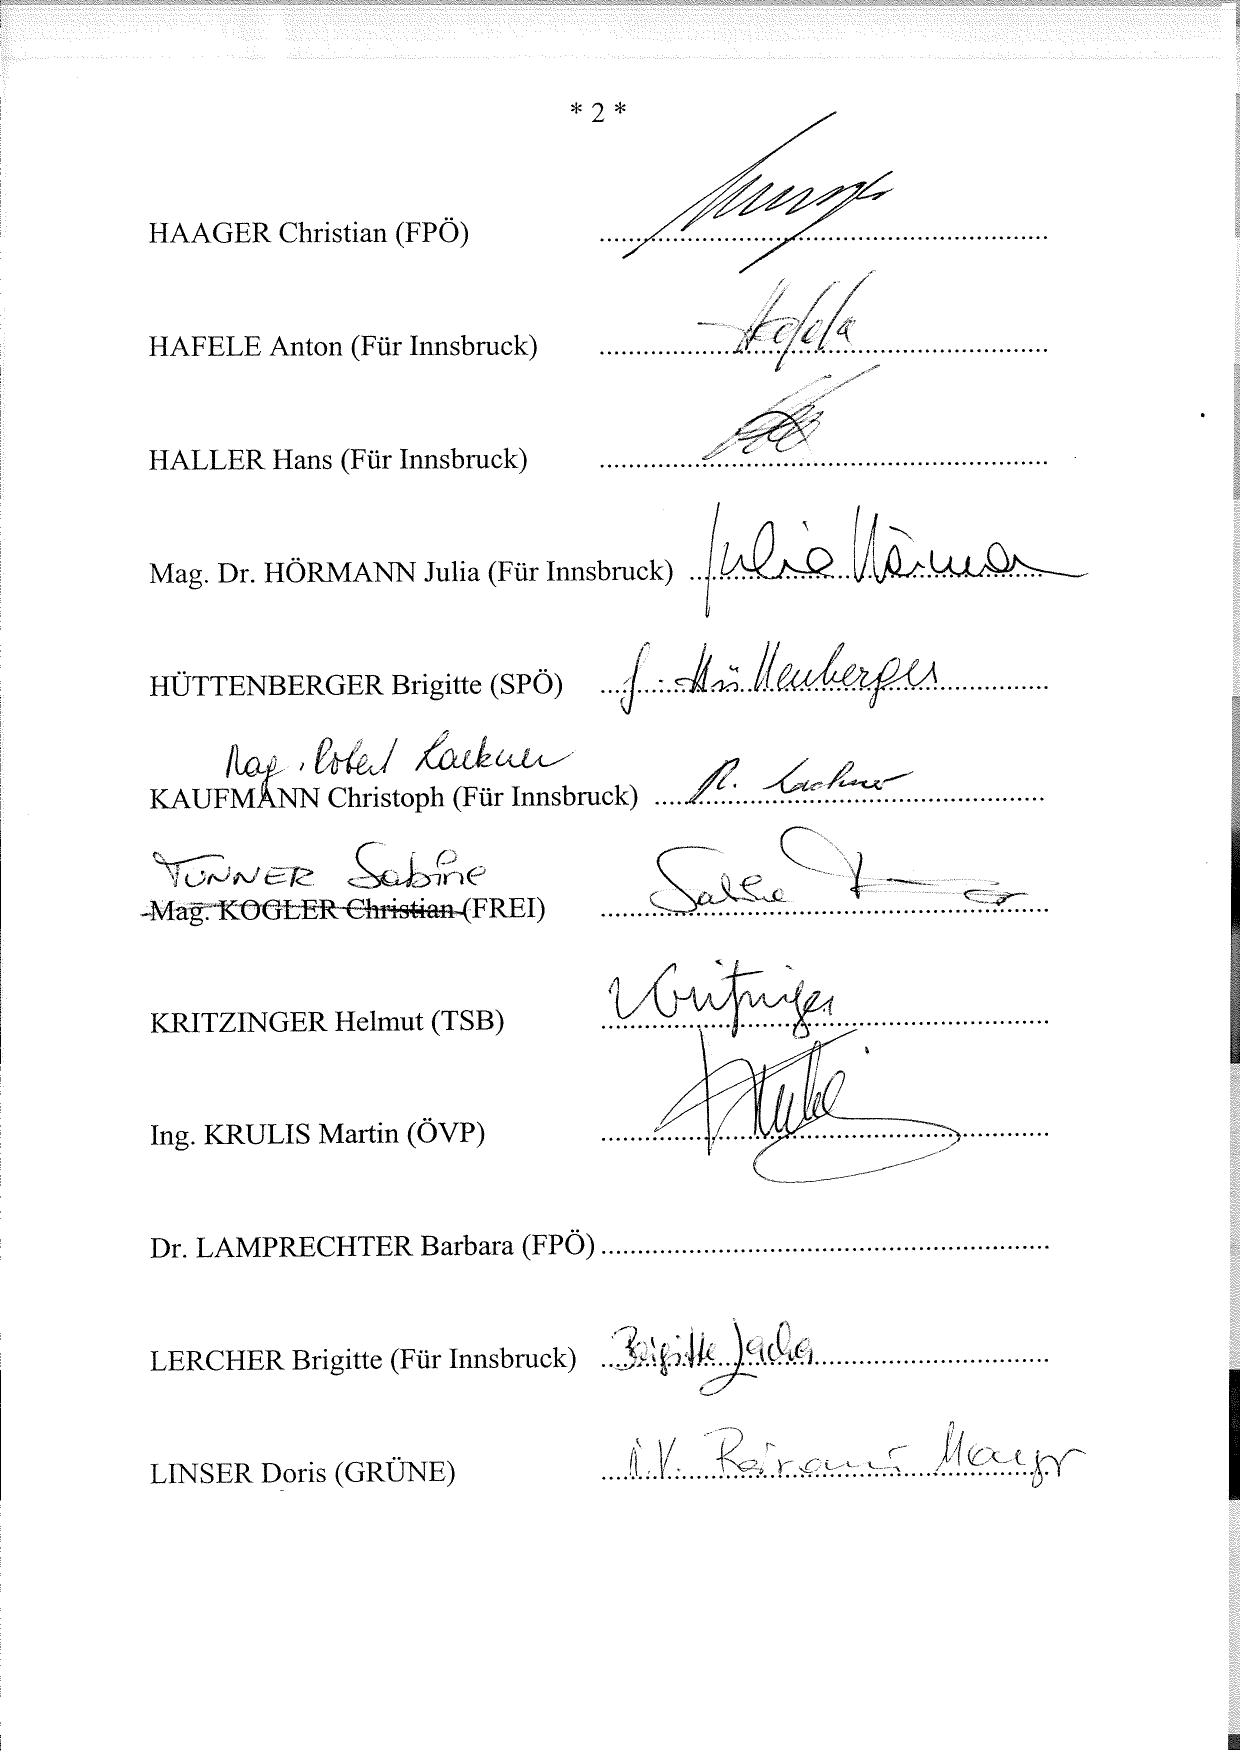 * 2 *
HAAGER Christian (FPÖ) ........................
HAFELE Anton (Für Innsbruck) ........................ Hafele
HALLER Hans (Für Innsbruck) ........................
Mag. Dr. HÖRMANN Julia (Für Innsbruck) ........................ Julia Hörmann
HÜTTENBERGER Brigitte (SPÖ) ........................ Hüttenberger
Mag. Robert Lackner
KAUFMANN Christoph (Für Innsbruck) ........................ R. Lackner
TUNNER Sabine
Mag. KOGLER Christian (FREI) ........................ Sabine
KRITZINGER Helmut (TSB) ........................ Kritzinger
Ing. KRULIS Martin (ÖVP) ........................
Dr. LAMPRECHTER Barbara (FPÖ) ........................
LERCHER Brigitte (Für Innsbruck) ........................ Brigitte Lercher
LINSER Doris (GRÜNE) ........................ i.V. Mayr